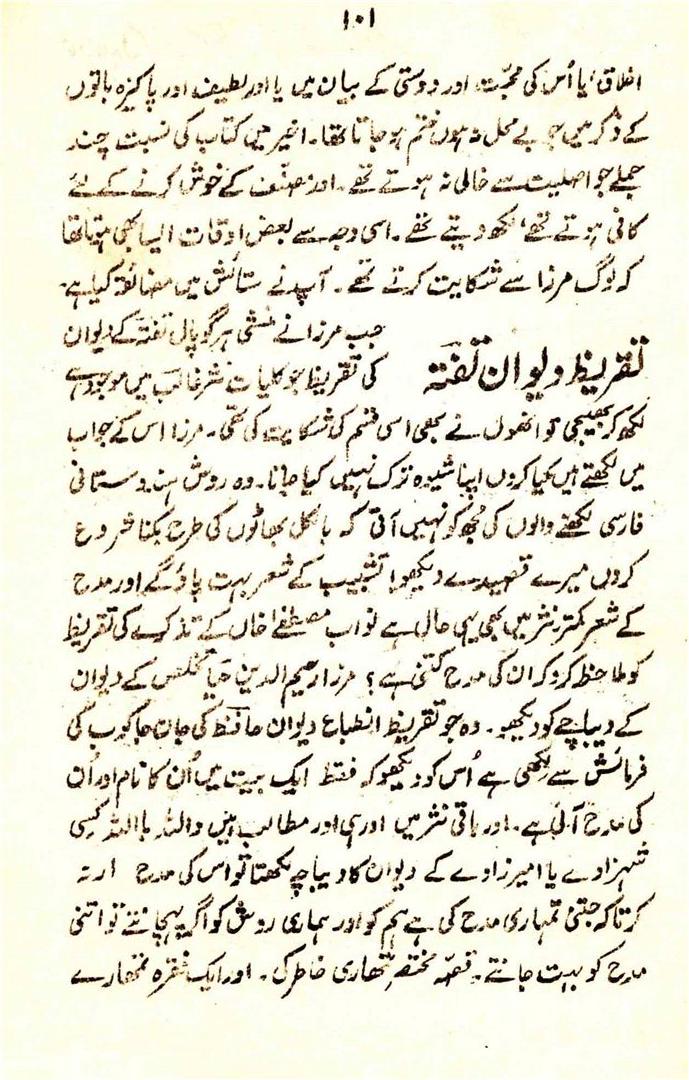 ۱۰۱
اخلاق' یا اُس کی محبّت اور دوستی کے بیان میں یا اور لطیف اور پاکیزہ باتوں
کے ذکر میں جو بے محل نہ ہوں ختم ہو جاتا تھا۔ اخیر میں کتاب کی نسبت چند
جملے جو اصلیت سے خالی نہ ہوتے تھے۔ اور مصنّف کے خوش کرنے کے لئے
کافی ہوتے تھے' لکھ دیتے تھے۔ اسی وجہ سے بعض اوقات ایسا بھی ہوتا تھا
کہ لوگ مرزا سے شکایت کرتے تھے۔ آپ نے ستائش میں مضائقہ کیا ہے۔
تقریظ دیوان تفتہ
جب مرزا نے منشی ہرگوپال تفتہ کے دیوان
کی تقریظ جو کلیات نثر غالب میں موجود ہے
لکھ کر بھیجی تو انھوں نے بھی اسی قسم کی شکایت کی تھی۔ مرزا اس کے جواب
میں لکھتے ہیں کیا کروں اپنا شیوہ ترک نہیں کیا جاتا۔ وہ روش ہندوستانی
فارسی لکھنے والوں کی مجھ کو نہیں آتی کہ بالکل بھاٹوں کی طرح بکنا شروع
کروں میرے قصیدے دیکھو! تشبیب کے شعر بہت پاؤ گے اور مدح
کے شعر کمتر نثر میں بھی یہی حال ہے نواب مصطفےٰ خاں کے تذکرے کی تقریظ
کو ملاحظہ کرو کہ ان کی مدح کتنی ہے؟ مرزا رحیم الدین حیا تخلص کے دیوان
کے دیباچے کو دیکھو۔ وہ جو تقریظ انطباع دیوان حافظ کی جان جاکوب کی
فرمائش سے لکھی ہے اُس کو دیکھو کہ فقط ایک بیت میں اُن کا نام اور اُن
کی مدح آئی ہے۔ اور باقی نثر میں اور ہی اور مطالب ہیں واللہ باللہ کسی
شہزادے یا امیرزادے کے دیوان کا دیباچہ لکھتا تو اس کی مدح نہ
کرتا کہ جتنی تمہاری مدح کی ہے ہم کو اور ہماری روش کو اگر پہچانتے تو اتنی
مدح کو بہت جانتے۔ قصّہ مختصر تمھاری خاطر کی۔ اور ایک فقرہ تمھارے